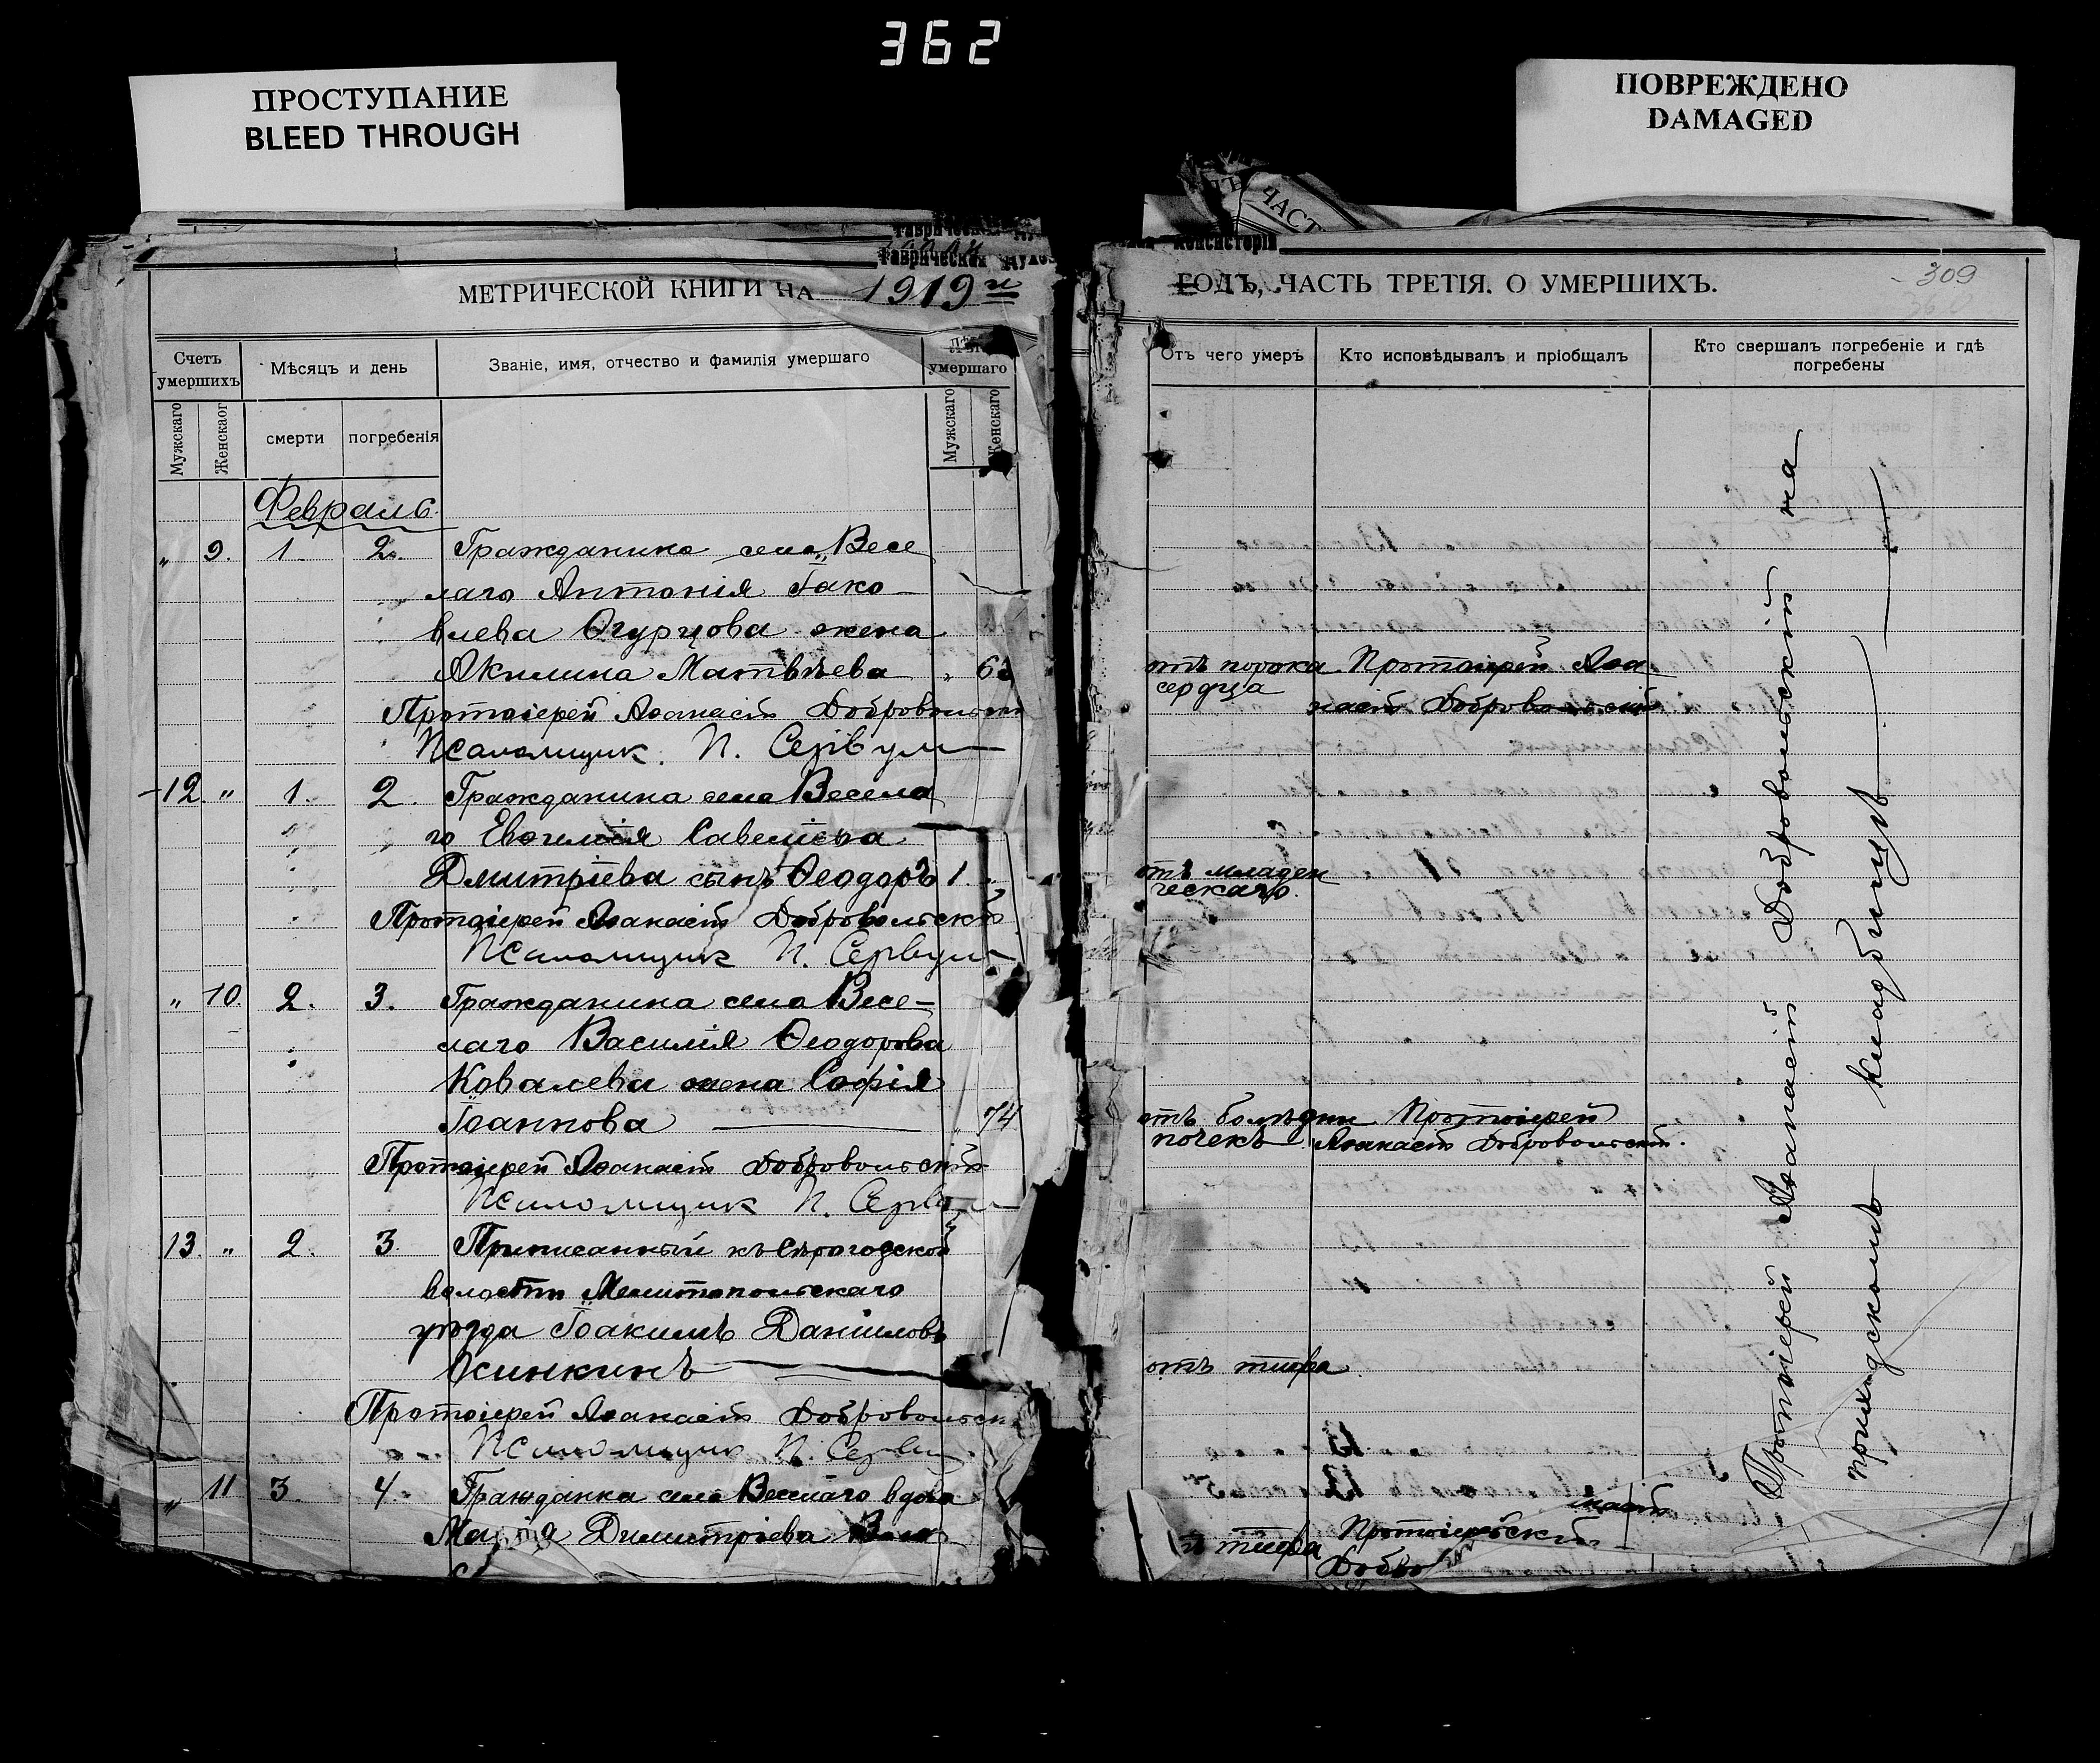 362
ПРОСТУПАНИЕ
BLEED THROUGH
ПОВРЕЖДЕНО
DAMAGED
ТЪ ЧАСТ
Таврическая
Таврическая Духов
Консисторіи
МЕТРИЧЕСКОЙ КНИГИ НА 1919 й
Счетъ умершихъ
Мѣсяцъ и день
Званіе, имя, отчество и фамилія умершаго
Лѣт умершаго
Мужскаго
Женскаог
смерти
погребенія
Мужскаго
Женскаго
Февраль
" 9. 1. 2. Гражданина села Весе
лаго Антонія Іако
влева Огурцова жена
Акилина Матвѣева " 6
Протоіерей Аѳанасій Добровольскій
Псаломщик П.
12. " 1. 2. Гражданина села Весела
го Савеліева
Дмитріева сынъ Ѳеодоръ 1. "
Протоіерей Аѳанасій Добровольскій
Псаломщик П.
" 10. 2. 3. Гражданина села Весе-
лаго Василія Ѳеодорова
Ковалева жена Софія
Іоаннова " 74
Протоіерей Аѳанасій Добровольскій
Псаломщик П.
13. " 2. 3. Приписанный къ Сѣрогозской
волости Мелитопольскаго
уѣзда Іоакимъ Даніиловъ
Осинкинъ
Протоіерей Аѳанасій Добровольск
Псаломщик П.
" 11 3. 4. Гражданка села Веселаго вдова
Марія Димитріева
ГОДЪ, ЧАСТЬ ТРЕТІЯ. О УМЕРШИХЪ.
309
Отъ чего умеръ
Кто исповѣдывалъ и пріобщалъ
Кто свершалъ погребеніе и гдѣ погребены
отъ порока сердца
Протоіерей Аѳа
насій Добровольскій
отъ младен
ческаго.
отъ болѣзни почекъ
Протоіерей
Аѳанасій Добровольскій.
отъ тифа
тифа
Протоіерей
насій
Добро
Протоіерей Аѳанасій Добровольскій на
приходскомъ кладбищѣ